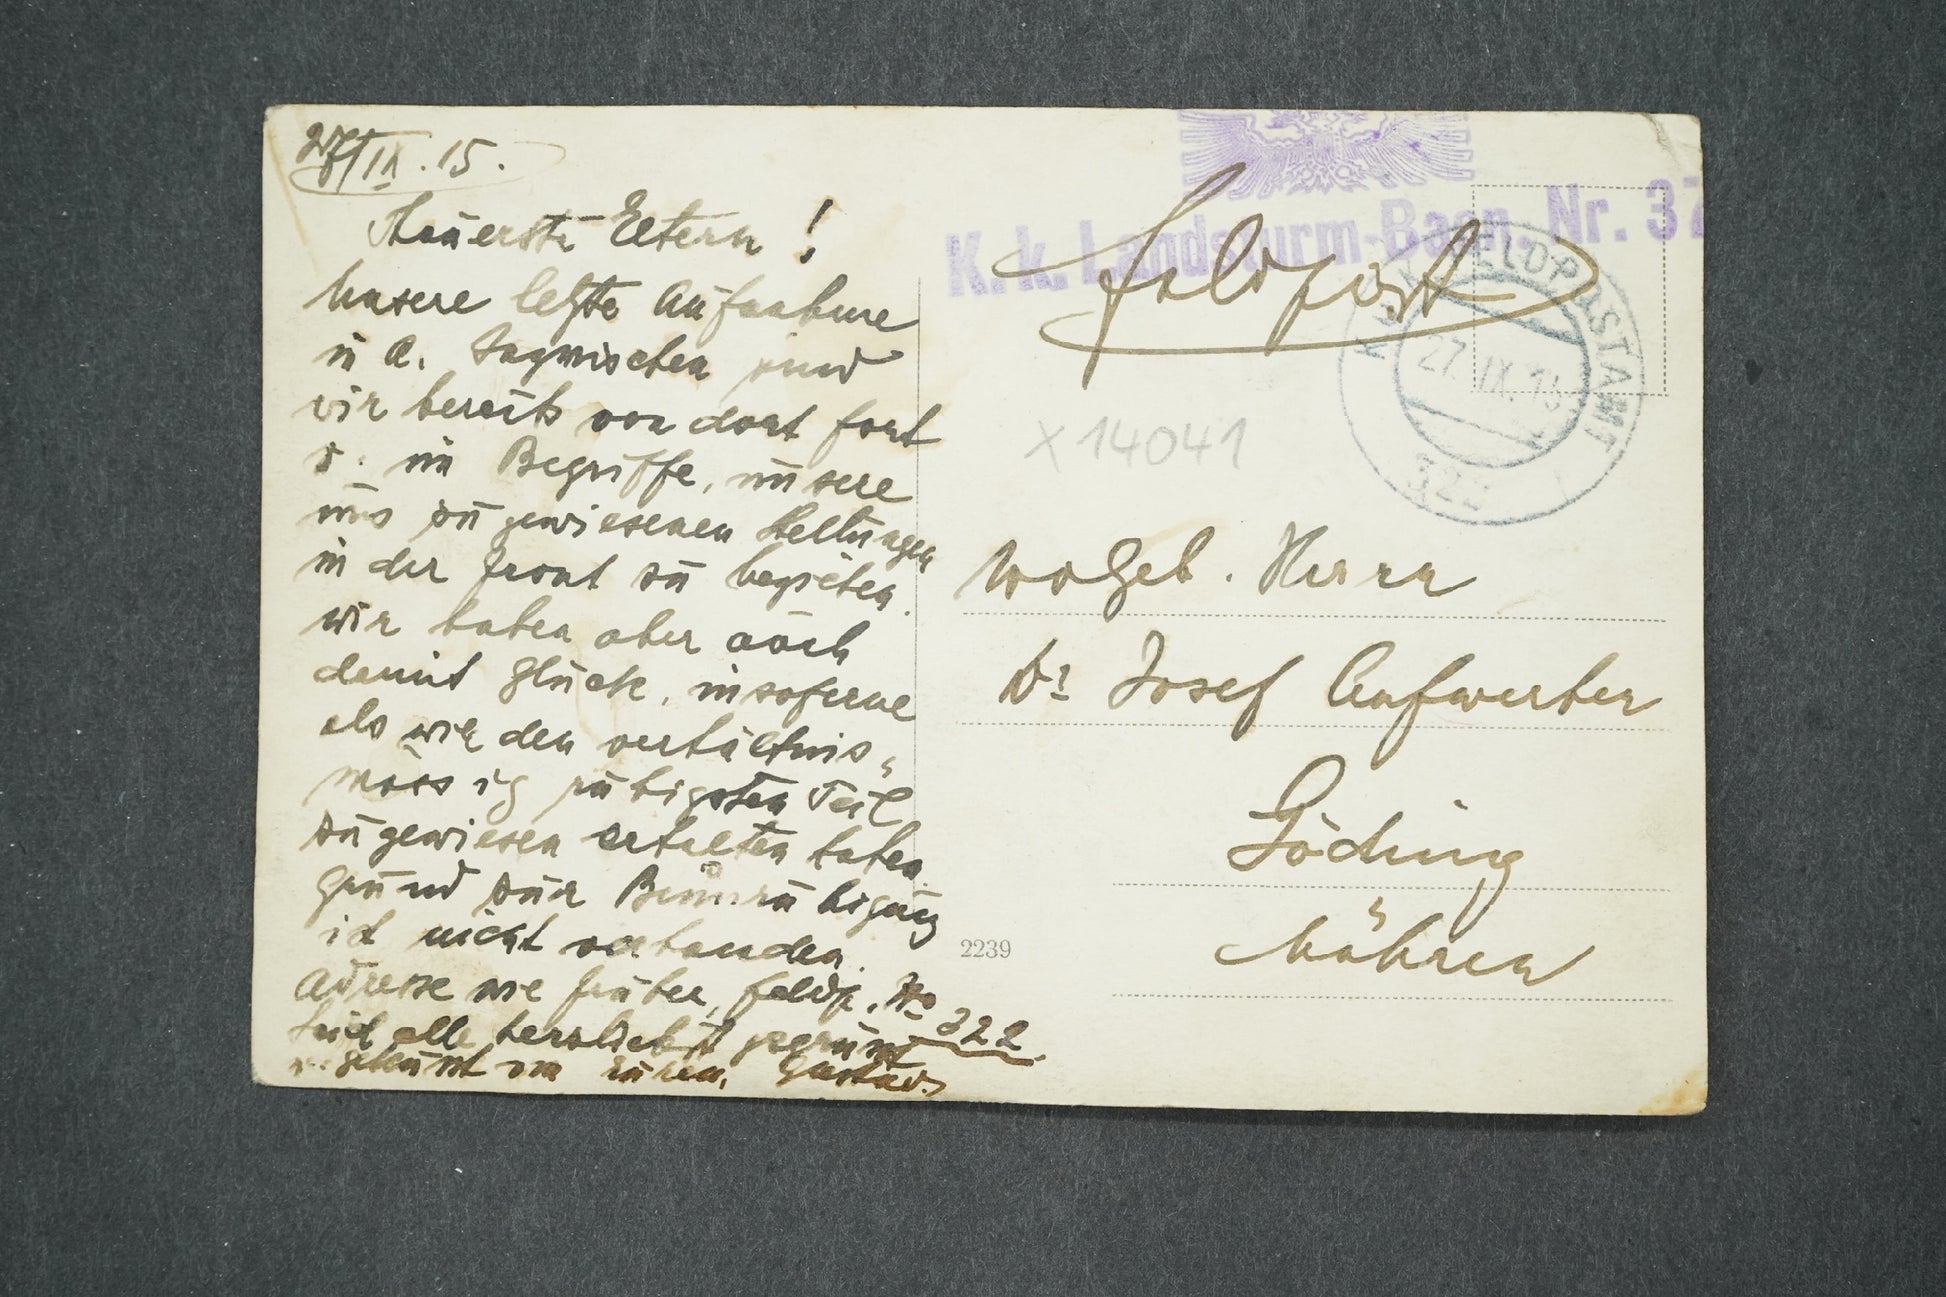 27/IX.15.
Teuerste Eltern!
Unsere letzte Aufnahme
in A. Inzwischen sind
wir bereits von dort fort
u. im Begriffe, unsere
uns zugewiesenen Stellungen
in der Front zu beziehen.
Wir haben aber auch
damit Glück, insoferne
als wir den verhältnis-
mässig ruhigsten Teil
zugewiesen erhalten haben.
Grund zur Beunruhigung
ist nicht vorhanden.
Adresse wie früher, Feldp. No 322.
Seid alle herzlichst gegrüsst
u. geküsst von Eurem Gustav.
K.k. Landsturm-Baon. Nr. 37
Feldpost
K.u.K. FELDPOSTAMT
27.IX.15
322
x 14041
Wolgeb. Herrn
Dr Josef Aufwerber
Göding
Mähren
2239